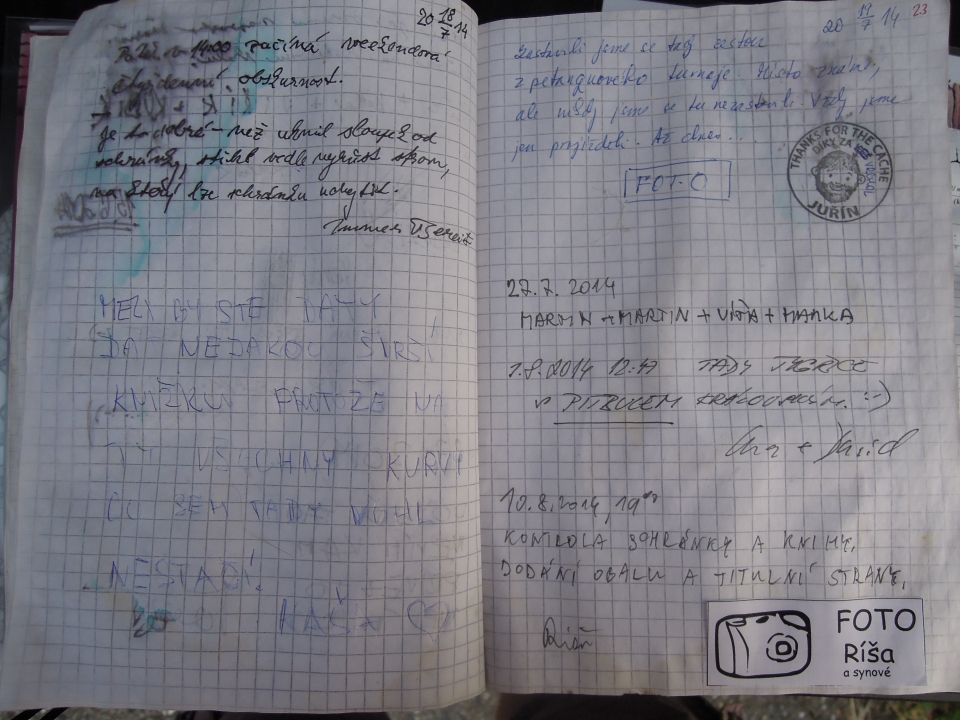 20 18/7 14
14:00 začíná
obskurnost.
Je to dobré – než uhnil sloupek od
schránky, stihl vedle vyrůst strom,
na který lze schránku uchytit.
MĚLI BY STE TADY
DAT NEJAKOU ŠIRŠÍ
KNIŽKU PROTOŽE NA
TY VŠECHNY KURVY
CO SEM TADY
NESTAČÍ.
KAŠA
20 19/7 14 23
Zastavili jsme se tady cestou
z petanquového turnaje. Místo známe,
ale nikdy jsme se tu nezastavili. Vždy jsme
jen projížděli. Až dnes...
FOTO
THANKS FOR THE CACHE
DÍKY ZA
JURÍN
27.7. 2014
MARTIN + MARTIN + VÍŤA + HANKA
1.8.2014 12:17 TADY
S PITBULEM :-)
+ David
10.8.2014, 19
KONTROLA SCHRÁNKY A KNIHY,
DODÁNÍ OBALU A TITULNÍ STRANY.
FOTO
Ríša
a synové